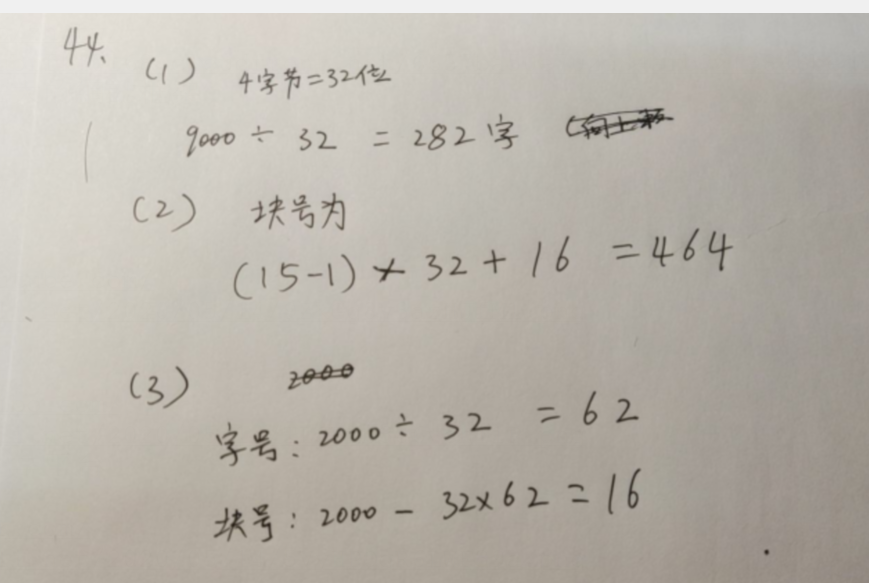 44.
(1) 4字节=32位
9000 ÷ 32 = 282字
(2) 块号为
(15-1) × 32 + 16 = 464
(3) 2000
字号: 2000 ÷ 32 = 62
块号: 2000 - 32×62 = 16